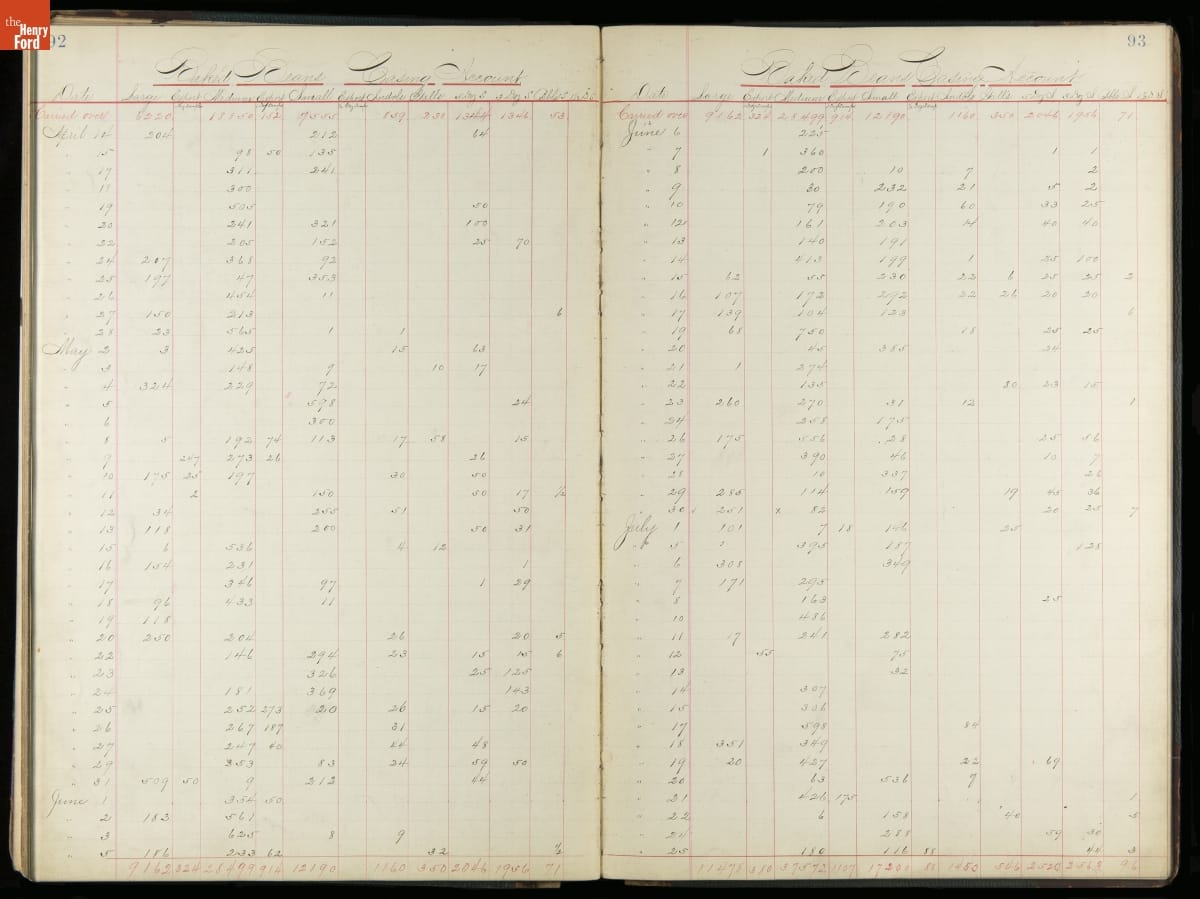 the
Henry
Ford
92
Baked Beans Casing Account
Date Large Export Medium Export Small Export Saddle Pello 2 Dz S 3 Dz S
Carried over 6220 18850 152 9555 859 230 1344 1346 53
April 14 204 212 64
" 15 98 50 135
" 17 311 241
" 18 300
" 19 505 50
" 20 241 321 100
" 22 205 152 25 70
" 24 207 368 92
" 25 197 47 353
" 26 454 11
" 27 150 213 6
" 28 23 565 1 1
May 2 3 425 15 63
" 3 148 9 10 17
" 4 324 229 72
" 5 598 24
" 6 300
" 8 5 192 74 113 17 58 15
" 9 247 273 26 26
" 10 175 25 197 30 50
" 11 2 150 50 17 1/2
" 12 34 255 51 50
" 13 118 200 50 31
" 15 6 536 4 12
" 16 154 231 1
" 17 346 97 1 29
" 18 96 433 11
" 19 118
" 20 250 204 26 20 5
" 22 146 294 23 15 15 6
" 23 326 25 125
" 24 181 369 143
" 25 252 273 20 26 15 20
" 26 267 187 31
" 27 247 40 44 48
" 29 353 83 24 59 50
" 31 509 50 9 212 44
June 1 354 50
" 2 183 561
" 3 625 8 9
" 5 186 233 62 32 1/2
9162 324 28499 914 12190 1160 350 2046 1956 71
93
Baked Beans Casing Account
Date Large Export Medium Export Small Export Saddle
Carried over 9162 324 28499 914 12190 1160 350 2046 1956 71
June 6 225
" 7 1 360 1 1
" 8 200 10 7 2
" 9 30 232 21 5 2
" 10 79 190 60 33 25
" 12 161 203 14 40 40
" 13 140 191
" 14 413 199 1 25 100
" 15 62 55 230 22 6 25 25 2
" 16 107 172 292 22 26 20 20
" 17 139 104 123 6
" 19 68 750 18 25 25
" 20 45 385 24
" 21 1 274
" 22 135 80 23 15
" 23 260 270 31 12 1
" 24 258 175
" 26 175 556 28 25 56
" 27 390 46 10 7
" 28 10 337 26
" 29 285 114 159 19 45 36
" 30 251 x 82 20 25 7
July 1 101 7 18 146 25
" 5 395 187 128
" 6 308 349
" 7 171 295
" 8 163 25
" 10 486
" 11 17 241 282
" 12 55 75
" 13 32
" 14 307
" 15 306
" 17 598 84
" 18 351 349
" 19 20 427 22 69
" 20 63 536 9
" 21 426 175 1
" 22 6 158 40 5
" 24 288 59 30
" 25 180 116 88 44 3
11478 380 37572 1107 17200 88 1450 546 2520 2563 96